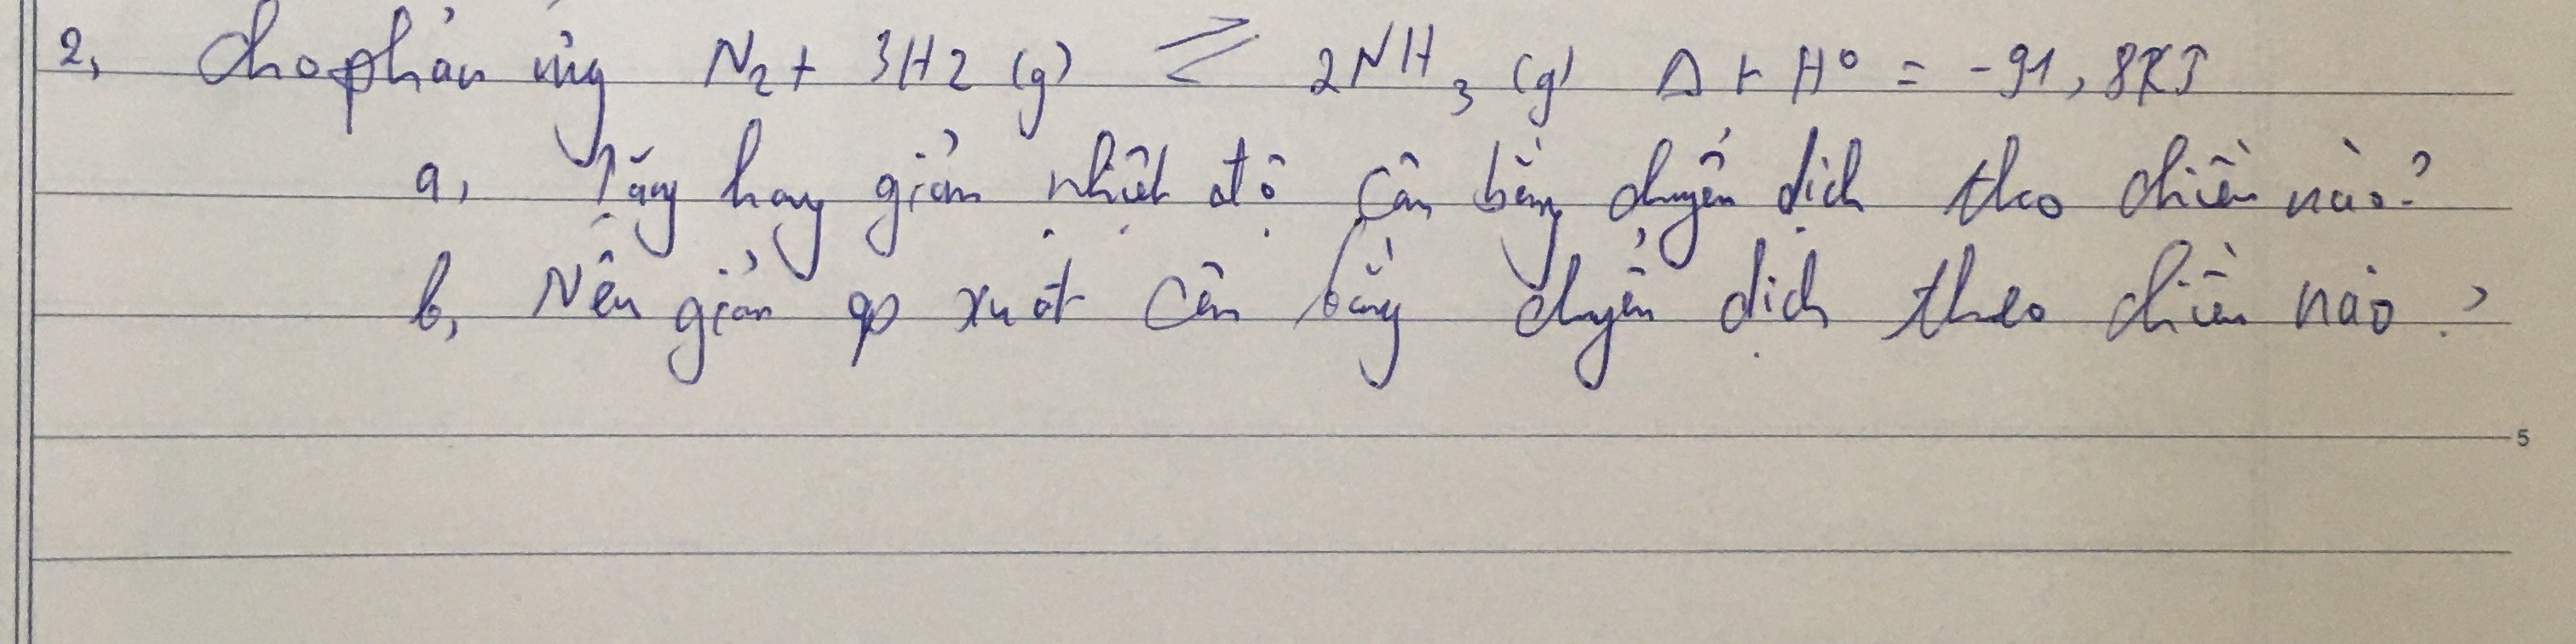 2, Cho phản ứng N2 + 3H2 (g) ⇌ 2NH3 (g) Δ r H° = -91,8KJ
a, Tăng hay giảm nhiệt độ cân bằng chuyển dịch theo chiều nào?
b, Nên giảm áp xuất cân bằng chuyển dịch theo chiều nào?
5